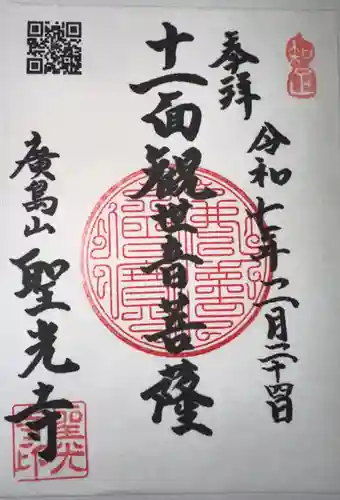 奉拝
令和七年二月二十四日
十一面観世音菩薩
廣島山
聖光寺